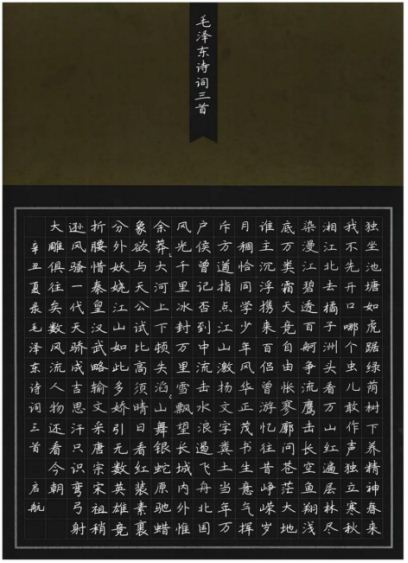 毛泽东诗词三首
独坐池塘如虎踞绿荫树下养精神春来
我不先开口哪个虫儿敢作声独立寒秋
湘江北去橘子洲头看万山红遍层林尽
染漫江碧透百舸争流鹰击长空鱼翔浅
底万类霜天竞自由怅寥廓问苍茫大地
谁主沉浮携来百侣曾游忆往昔峥嵘岁
月稠恰同学少年风华正茂书生意气挥
斥方遒指点江山激扬文字粪土当年万
户侯曾记否到中流击水浪遏飞舟北国
风光千里冰封万里雪飘望长城内外惟
余莽、大河上下顿失滔、山舞银蛇原驰蜡
象欲与天公试比高须晴日看红装素裹
分外妖娆江山如此多娇引无数英雄竞
折腰惜秦皇汉武略输文采唐宗宋祖稍
逊风骚一代天骄成吉思汗只识弯弓射
大雕俱往矣数风流人物还看今朝
辛丑夏录毛泽东诗词三首 启航